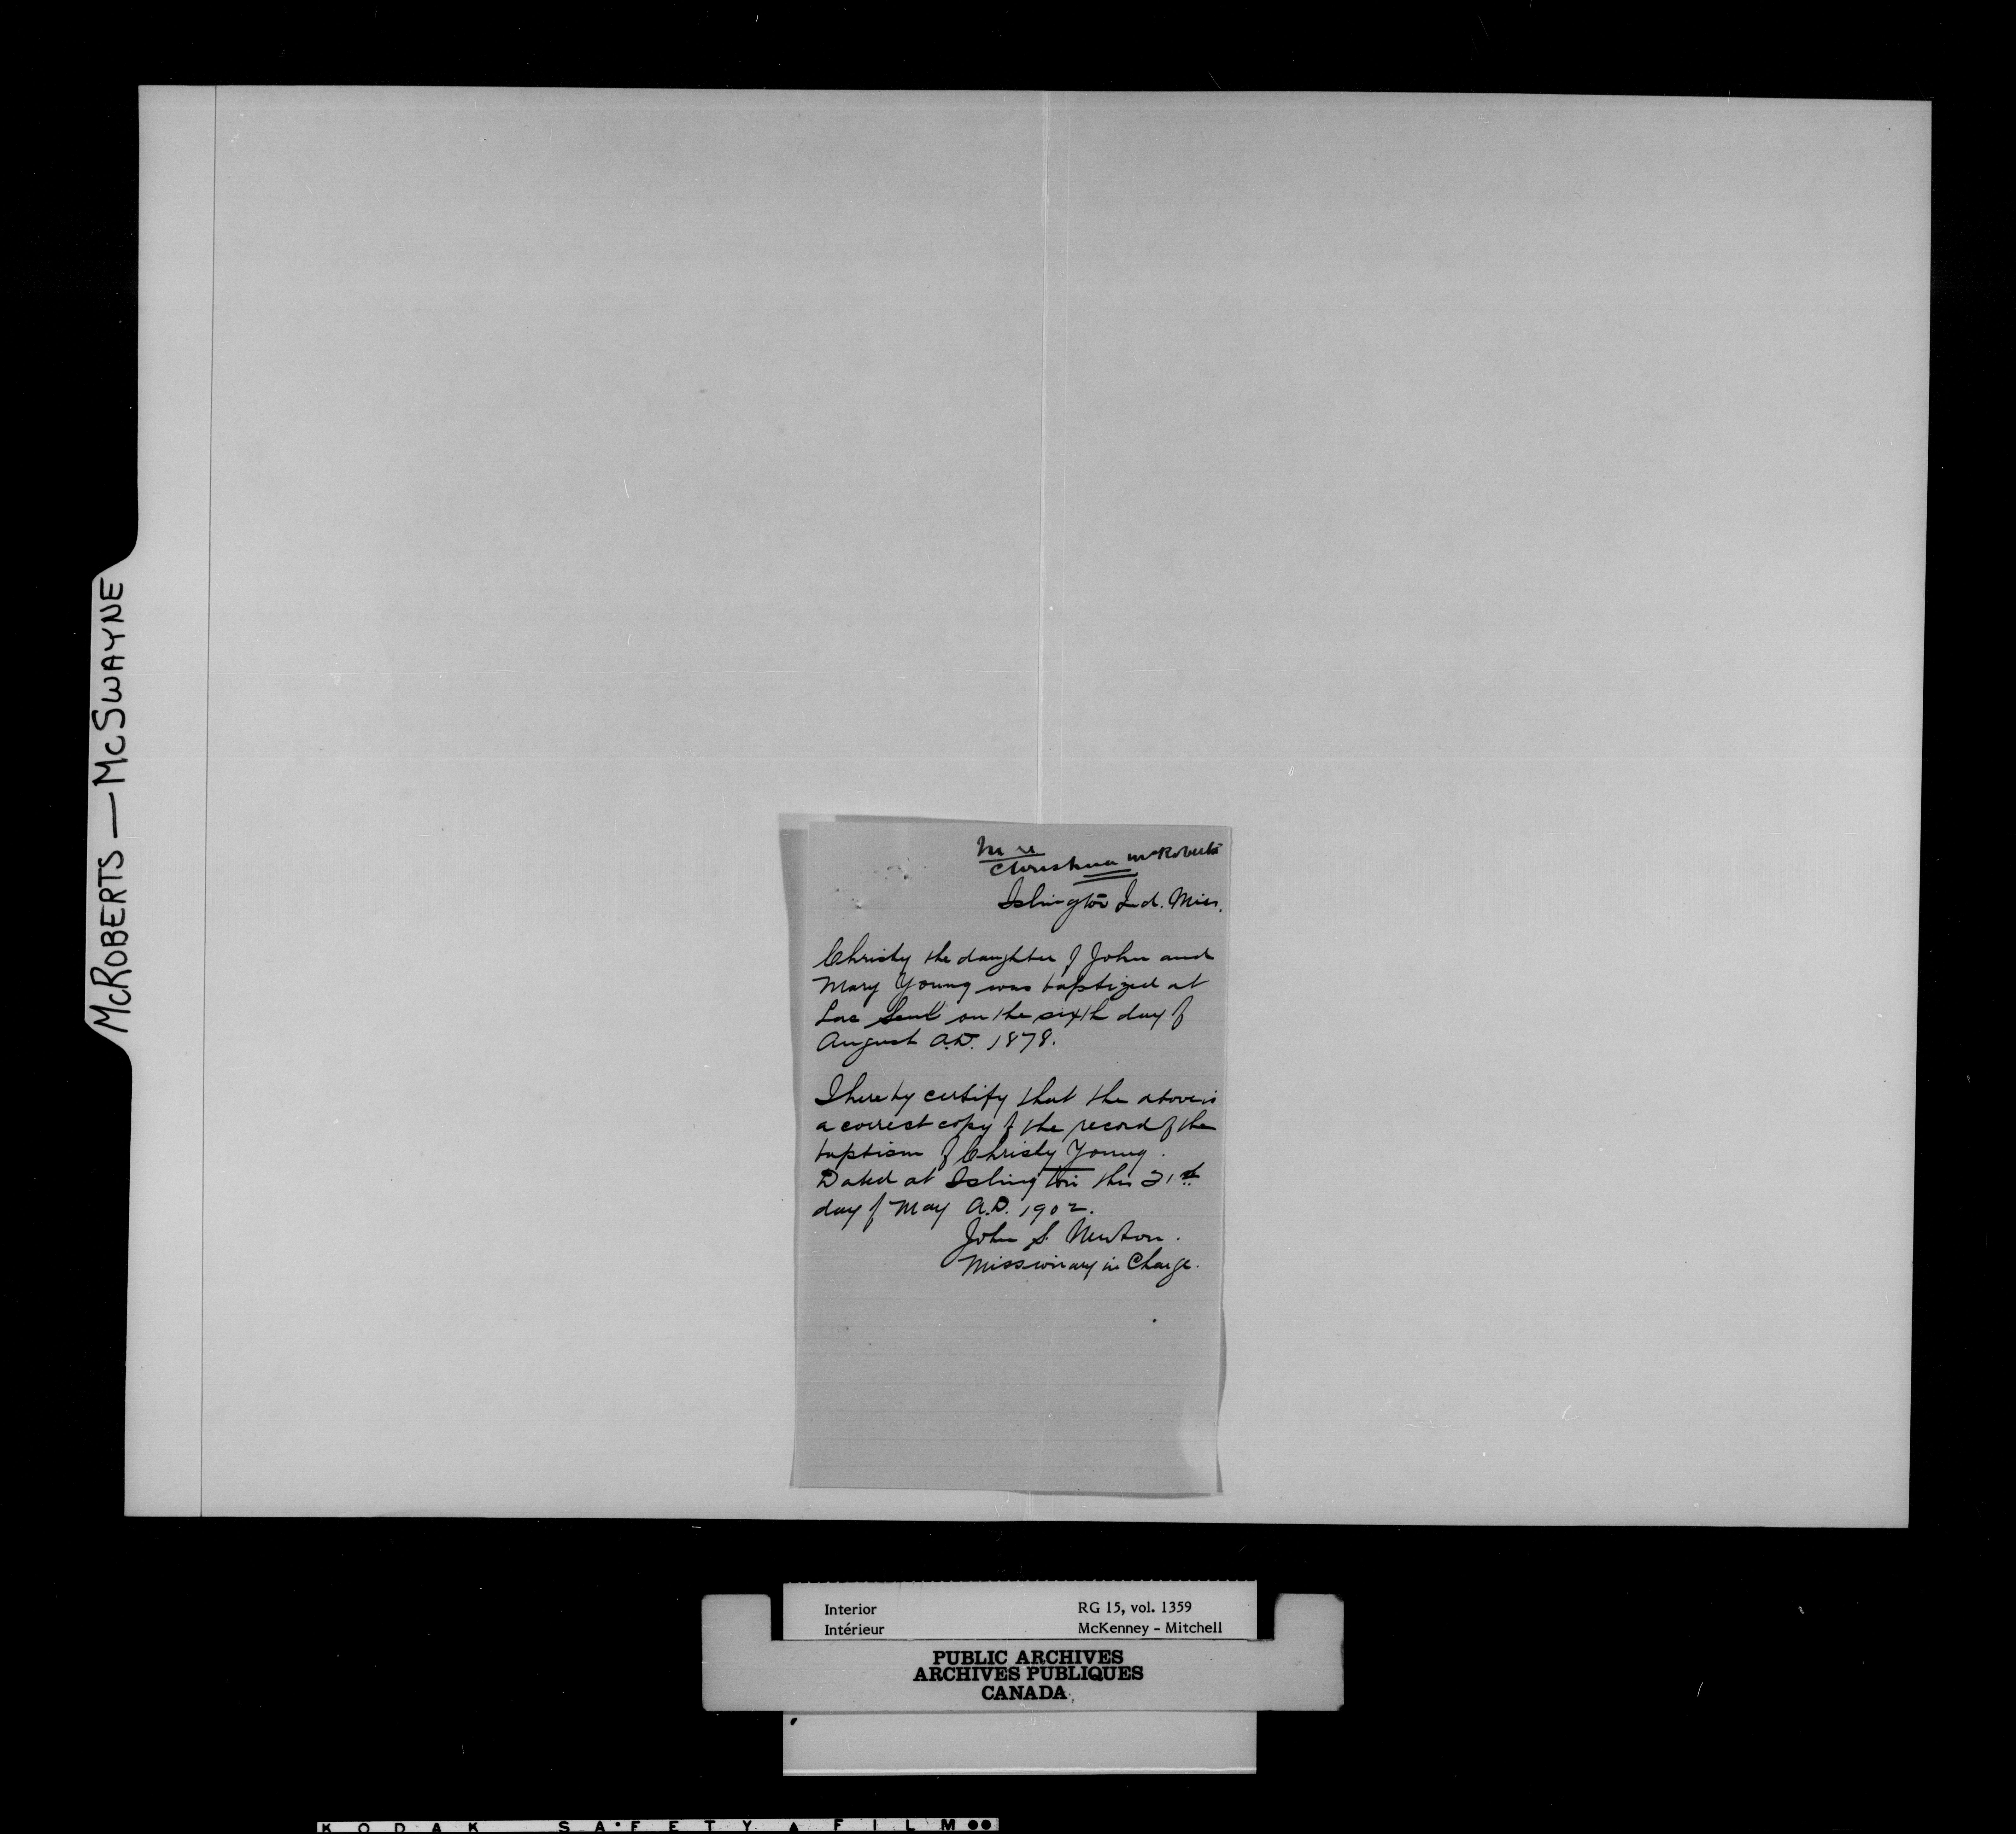 McROBERTS — McSWAYNE
Christina McRoberts
Islington Ind. Miss.
Christy the daughter of John and
Mary Young was baptized at
Lac Seul on the sixth day of
August A.D. 1878.
I hereby certify that the above is
a correct copy of the record of the
baptism of Christy Young.
Dated at Islington this 21st
day of May A.D. 1902.
John S. Newton.
Missionary in Charge.
Interior RG 15, vol. 1359
Intérieur McKenney - Mitchell
PUBLIC ARCHIVES
ARCHIVES PUBLIQUES
CANADA
KODAK SAFETY FILM